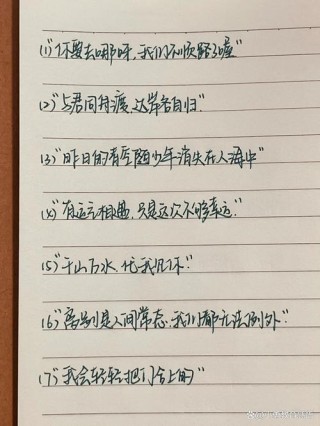 (1)"你要去哪呀,我们不顺路了喔"
(2)"与君同舟渡,达岸各自归"
(3)"昨日的青空随少年消失在人海中"
(4)"有幸相遇,只是这次不够幸运"
(5)"千山万水,忧我几怀"
(6)"离别是人间常态,我们都无法例外"
(7)"我会轻轻把门合上的"